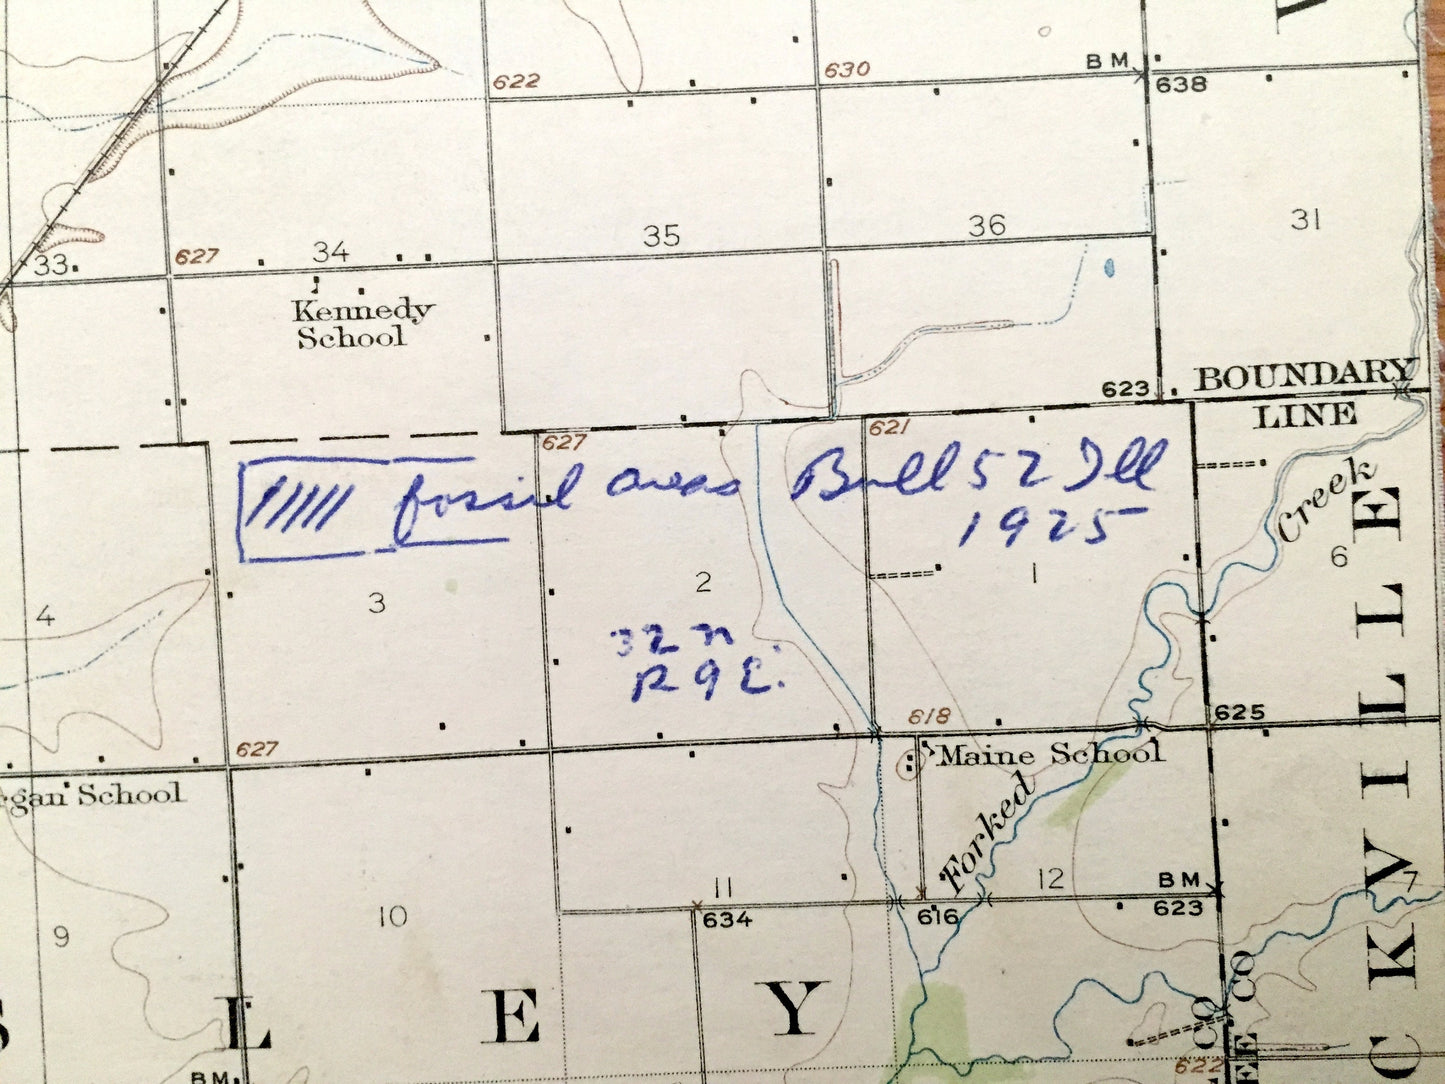 622
630
BM
638
33
627
34
35
36
31
Kennedy
School
623
BOUNDARY
LINE
627
621
fossil areas Bull 52 Ill
1925
Creek
4
3
2
1
6
32 N
R 9 E.
627
618
625
Maine School
gan School
Forked
11
12
BM
7
634
616
623
9
10
L E Y
CKVILLE
CO
CO
EE
622
BM